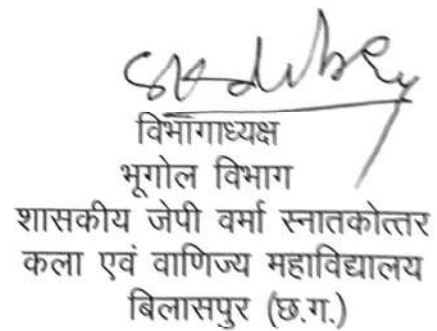 विभागाध्यक्ष
भूगोल विभाग
शासकीय जेपी वर्मा स्नातकोत्तर
कला एवं वाणिज्य महाविद्यालय
बिलासपुर (छ.ग.)